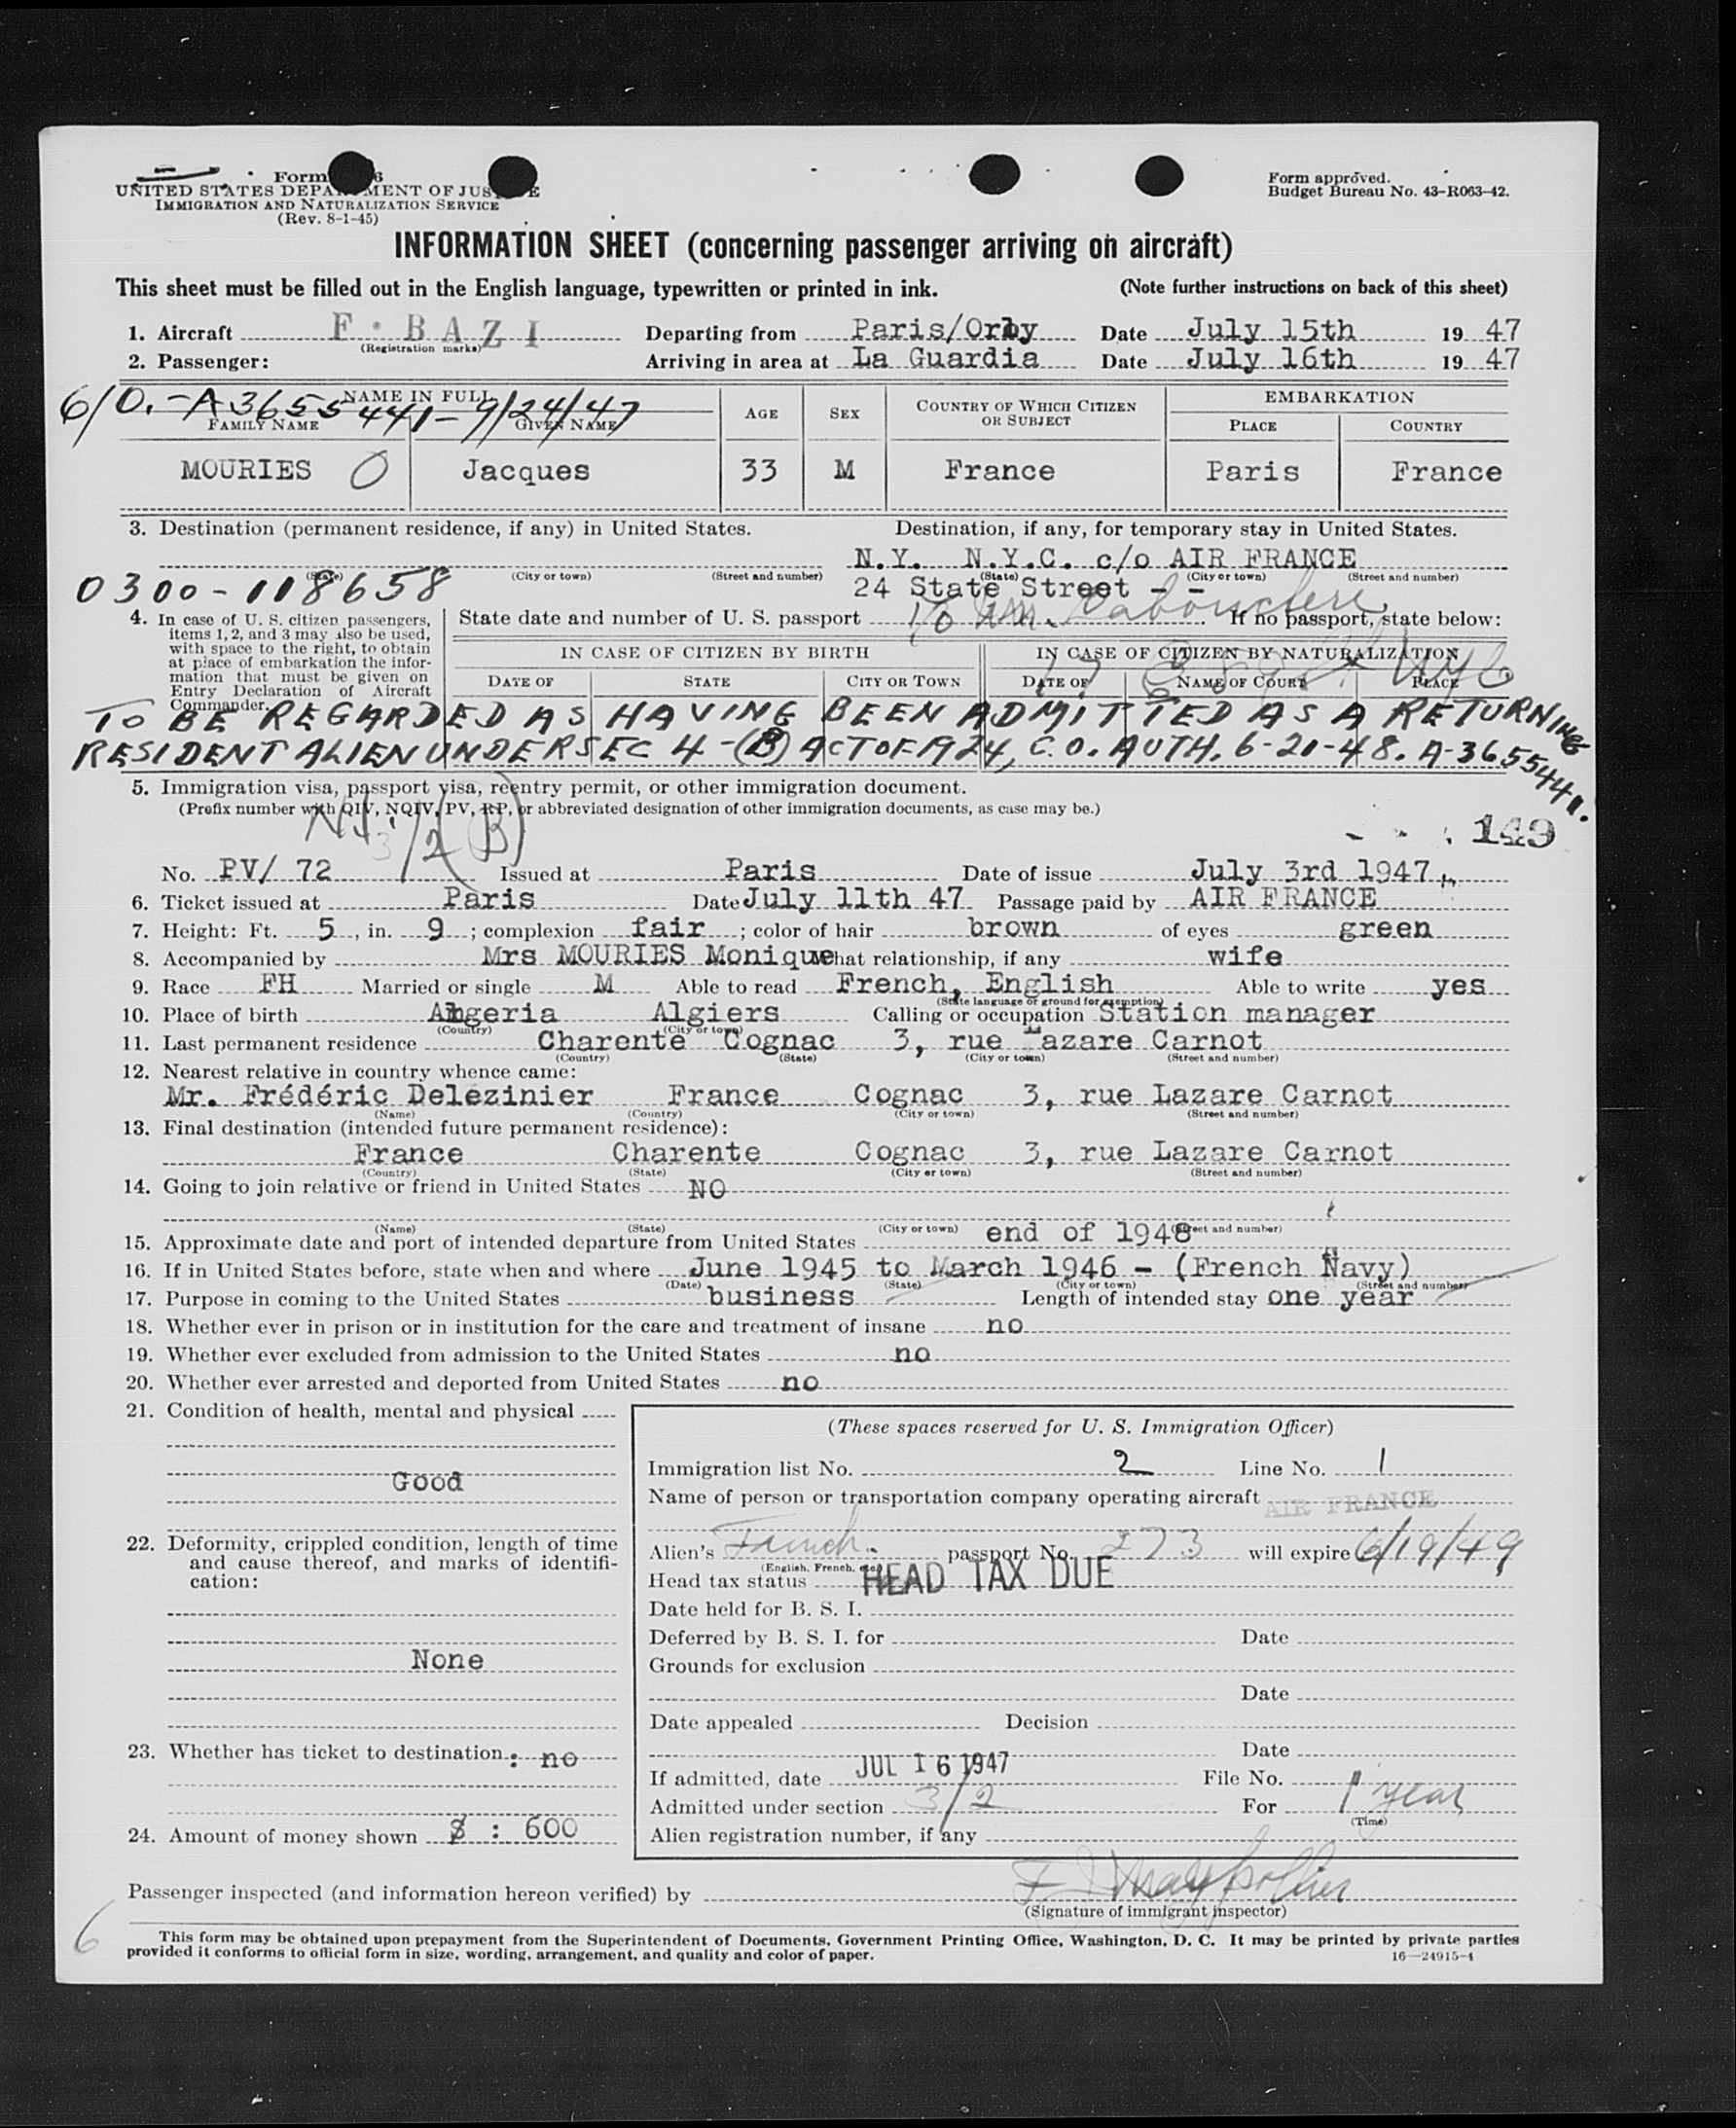 Form 6
UNITED STATES DEPARTMENT OF JUSTICE
IMMIGRATION AND NATURALIZATION SERVICE
(Rev. 8-1-45)
Form approved.
Budget Bureau No. 43-R063-42.
INFORMATION SHEET (concerning passenger arriving on aircraft)
This sheet must be filled out in the English language, typewritten or printed in ink. (Note further instructions on back of this sheet)
1. Aircraft F·BAZI (Registration marks) Departing from Paris/Orly Date July 15th 19 47
2. Passenger: Arriving in area at La Guardia Date July 16th 19 47
6/0.-A3655441-9/24/47
NAME IN FULL
FAMILY NAME GIVEN NAME AGE SEX COUNTRY OF WHICH CITIZEN OR SUBJECT EMBARKATION PLACE COUNTRY
MOURIES O Jacques 33 M France Paris France
3. Destination (permanent residence, if any) in United States. Destination, if any, for temporary stay in United States.
N.Y. N.Y.C. c/o AIR FRANCE
(State) (City or town) (Street and number) (State) (City or town) (Street and number)
0300-118658 24 State Street - -
4. In case of U. S. citizen passengers, items 1, 2, and 3 may also be used, with space to the right, to obtain at place of embarkation the information that must be given on Entry Declaration of Aircraft Commander.
State date and number of U. S. passport If no passport, state below:
IN CASE OF CITIZEN BY BIRTH IN CASE OF CITIZEN BY NATURALIZATION
DATE OF STATE CITY OR TOWN DATE OF NAME OF COURT PLACE
17 E 89 St NYC
TO BE REGARDED AS HAVING BEEN ADMITTED AS A RETURNING
RESIDENT ALIEN UNDER SEC 4-(B) ACT OF 1924, C.O. AUTH. 6-21-48. A-3655441.
5. Immigration visa, passport visa, reentry permit, or other immigration document.
(Prefix number with QIV, NQIV, PV, RP, or abbreviated designation of other immigration documents, as case may be.)
3/2 (B)
149
No. PV/ 72 Issued at Paris Date of issue July 3rd 1947
6. Ticket issued at Paris Date July 11th 47 Passage paid by AIR FRANCE
7. Height: Ft. 5, in. 9; complexion fair; color of hair brown of eyes green
8. Accompanied by Mrs MOURIES Monique what relationship, if any wife
9. Race FH Married or single M Able to read French, English Able to write yes
(State language or ground for exemption)
10. Place of birth Algeria Algiers Calling or occupation Station manager
(Country) (City or town)
11. Last permanent residence Charente Cognac 3, rue Lazare Carnot
(Country) (State) (City or town) (Street and number)
12. Nearest relative in country whence came:
Mr. Frédéric Delezinier France Cognac 3, rue Lazare Carnot
(Name) (Country) (City or town) (Street and number)
13. Final destination (intended future permanent residence):
France Charente Cognac 3, rue Lazare Carnot
(Country) (State) (City or town) (Street and number)
14. Going to join relative or friend in United States NO
(Name) (State) (City or town) (Street and number)
15. Approximate date and port of intended departure from United States end of 1948
16. If in United States before, state when and where June 1945 to March 1946 - (French Navy)
(Date) (State) (City or town) (Street and number)
17. Purpose in coming to the United States business Length of intended stay one year
18. Whether ever in prison or in institution for the care and treatment of insane no
19. Whether ever excluded from admission to the United States no
20. Whether ever arrested and deported from United States no
21. Condition of health, mental and physical
Good
22. Deformity, crippled condition, length of time and cause thereof, and marks of identification:
None
23. Whether has ticket to destination : no
24. Amount of money shown $ : 600
(These spaces reserved for U. S. Immigration Officer)
Immigration list No. 2 Line No. 1
Name of person or transportation company operating aircraft AIR FRANCE
Alien's French passport No. 273 will expire 6/19/49
(English, French, etc.)
Head tax status HEAD TAX DUE
Date held for B. S. I.
Deferred by B. S. I. for Date
Grounds for exclusion
Date
Date appealed Decision
Date
If admitted, date JUL 16 1947 File No.
Admitted under section 3/2 For 1 year
(Time)
Alien registration number, if any
Passenger inspected (and information hereon verified) by
(Signature of immigrant inspector)
6
This form may be obtained upon prepayment from the Superintendent of Documents, Government Printing Office, Washington, D. C. It may be printed by private parties
provided it conforms to official form in size, wording, arrangement, and quality and color of paper. 16—24915-1